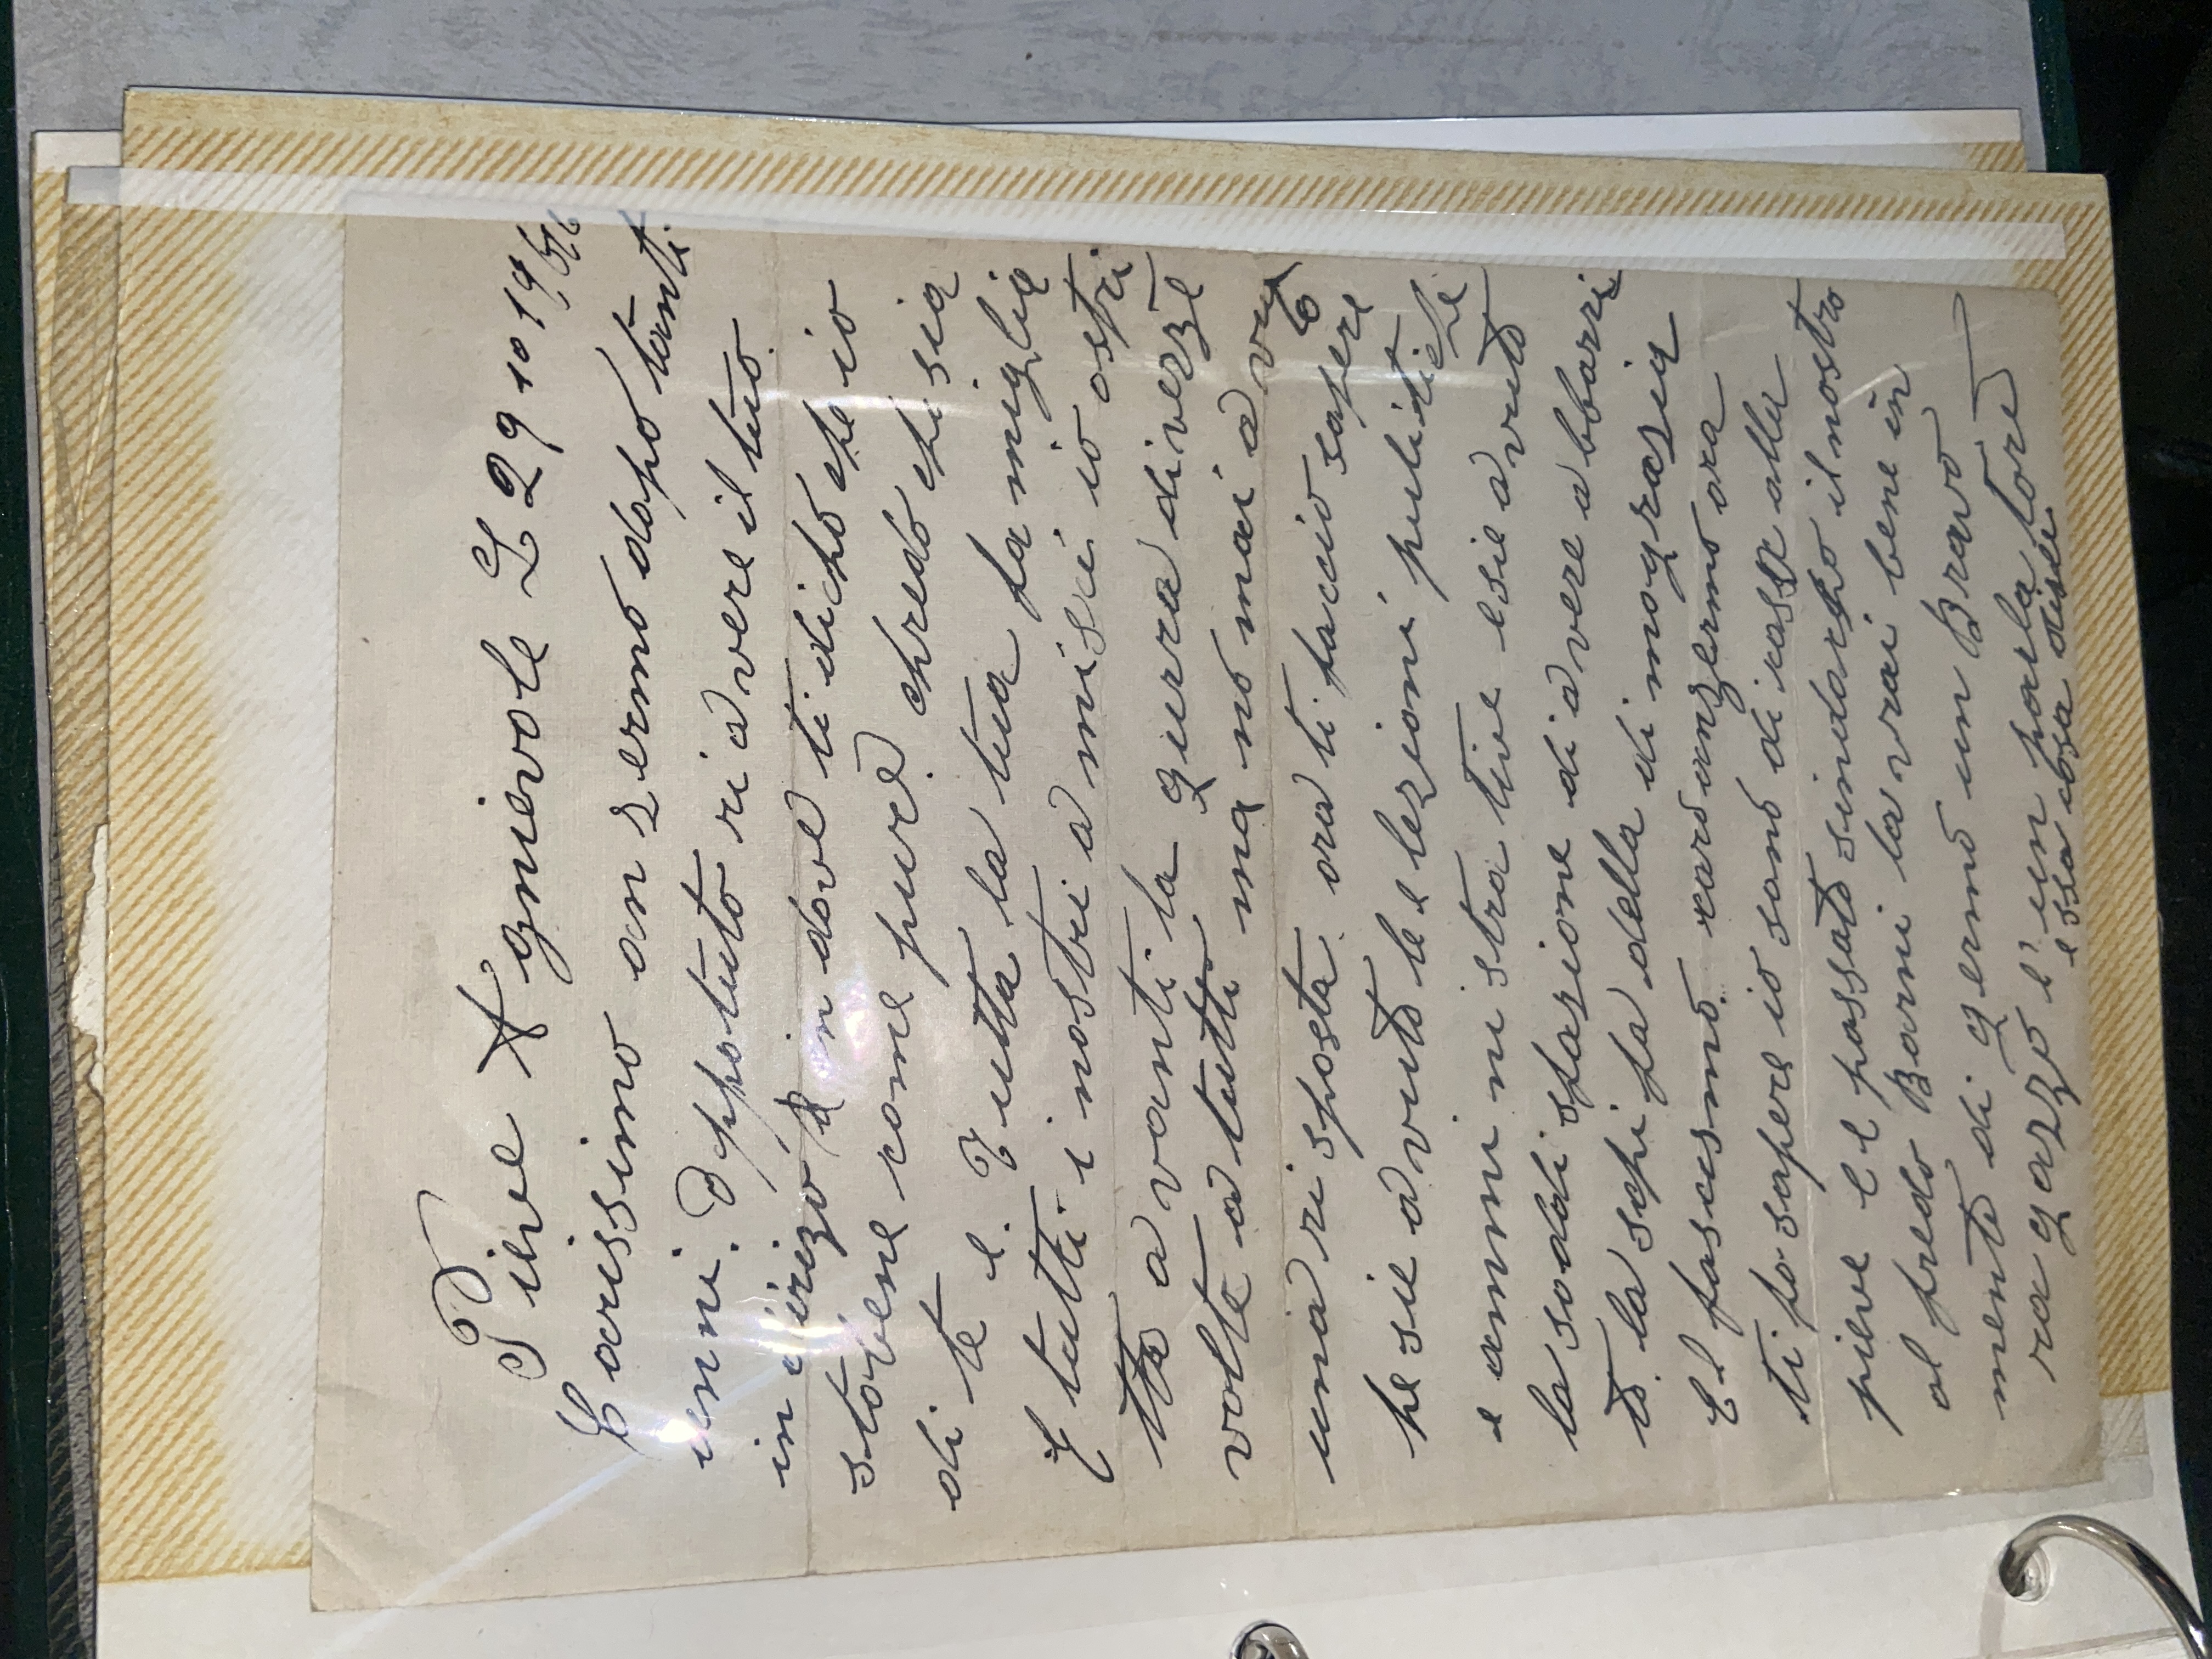 Pive Agnievole L 29 10 1946
Carissimo anzermo dopo tanti
anni. O ppotuto ri a vere il tuo
in dirizo in dove ti dicho che io
sto bene come pure chredo chi sia
di te e. Tutta la tua famiglia
E tutti i nostri a misci io ostri
tto a vanti la guerra diverze
volte a tutti ma no mai a vuto
una ri sposta. ora ti faccio sapere
he sie a vuto le lezioni pulitiche
e ammi ni stra tive e sie a vuto
la soddi sfazione di a vere a bbarri
to. la schi fa della di mogrosia
El fascismo. caro anzermo ora
ti fo sapere io sono di casa alla
pieve e l passato sindacho il nostro
al fredo Barni la vrai bene in
mente di germo un Bravo
ra gazzo e' un parla tore
e ssa cosa disci